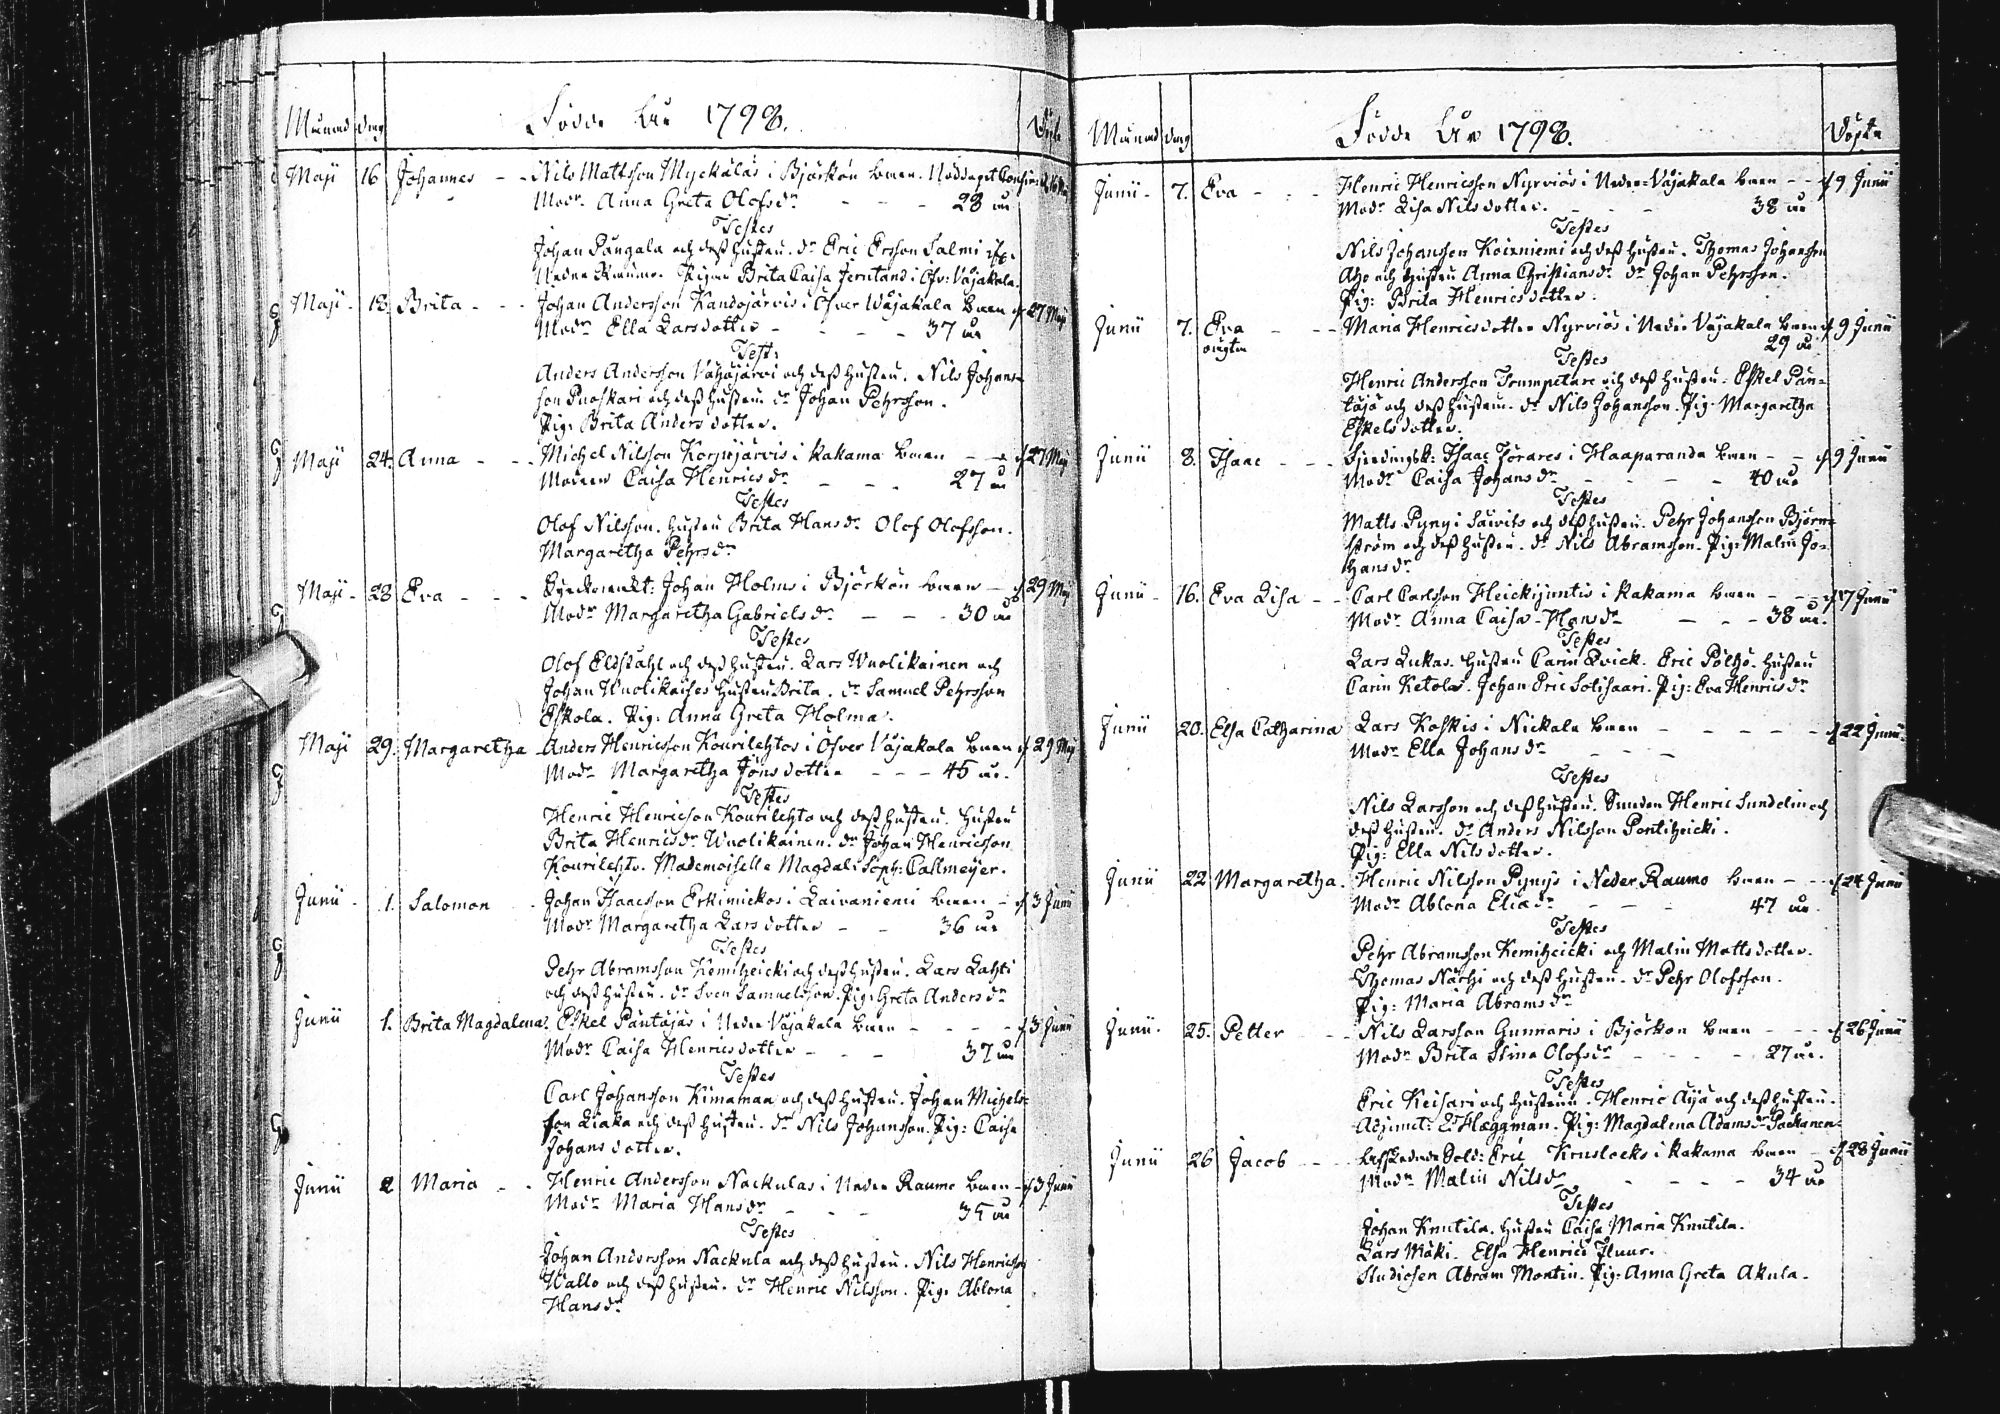 Månad dag Födde År 1798. Döpte
Maji 16 Johannes - - Nils Mattsson Myckälas i Björkön barn. Nöddopet Confir: d. 16 Maj
Modr. Anna Greta Olofsdr - - - 28 år
Testes
Johan Pångala och dess hustru. dr Eric Ersson Salmi
Nedre Raumo. Pigan Brita Caisa Jerntand i Öfv: Wäjakala.
Maji - 18. Brita - - - Johan Andersson Kandojärvis i Öfver Wåjakala barn d 27 Maji
Modr Ella Larsdotter - - - - 37 år
Test:
Anders Andersson Vähäjärvi och dess hustru. Nils Johans-
son Puoskari och dess hustru dr Johan Pehrsson.
Pig: Brita Andersdotter.
Maji 24. Anna - - - Michel Nilsson Korpijärvis i Kakama barn - - d 27 Maj
Modren Caisa Henricsdr - - - 27 år
Testes
Olof Nilsson. hustru Brita Hansdr Olof Olofsson.
Margaretha Pehrsdr
Maji - 28 Eva - - - Johan Holms i Björkön barn - d 29 Maj
Modr Margaretha Gabrielsdr - - - 30 år
Testes
Olof Eldståhl och dess hustru. Lars Wuolikainen och
Johan Wuolikaises hustru Brita. dr Samuel Pehrsson
Eskola. Pig: Anna Greta Holma.
Maji 29. Margaretha - Anders Henricsson Kourilehtos i Öfver Väjakala barn d 29 Maj
Modr Margaretha Jönsdotter - - - 45 år.
Testes
Henric Henricsson Kourilehto och dess hustru. hustru
Brita Henricsdr Wuolikainen. dr Johan Henricsson
Kourilehto. Mademoiselle Magdal: Soph: Callmeyer.
Junii - 1. Salomon - Johan Isacsson Erkimickos i Laivaniemi barn - d 3 Junii
Modr Margaretha Larsdotter - - 36 år
Testes
Pehr Abramsson Kemiheicki och dess hustru. Lars Lahti
och dess hustru. dr Sven Samuelsson. Pig: Greta Andersdr
Junii 1. Brita Magdalena. Eskel Pantäjäs i Neder Väjakala barn - - - - d 3 Junii
Modr Caisa Henricsdotter - - - 37 år
Testes
Carl Johansson Kimamaa och dess hustru. Johan Michels-
son Liaka och dess hustru. dr Nils Johansson. Pig: Caisa
Johansdotter.
Junii 2 Maria - - Henric Andersson Nackulas i Neder Raumo barn - d 3 Junii
Modr Maria Hansdr - - - 35 år
Testes
Johan Andersson Nackula och dess hustru. Nils Henricsson
Wallo och dess hustru. dr Henric Nilsson. Pig: Ablona
Hansdr
Månad dag Födde År 1798. Döpte
Junii - 7. Eva - - - Henric Henricsson Nyrviös i Neder-Väjakala barn - - d 9 Junii
Modr Lisa Nilsdotter. - - - 38 år
Testes
Nils Johansson Koivniemi och dess hustru. Thomas Johansson
Aho och hustru Anna Christiansdr dr Johan Pehrsson.
Pig: Brita Henricsdotter.
Junii 7. Eva - - - Maria Henricsdotter Nyrviös i Neder Väjakala barn d 9 Junii
oägta 29 år
Testes
Henric Andersson Trumpetare och dess hustru. Eskel Pän-
täjä och dess hustru. dr Nils Johansson. Pig: Margaretha
Eskelsdotter.
Junii 8. Isaac - - - Isaac Töräres i Haaparanda barn - - d 9 Junii
Modr Caisa Johansdr - - - - 40 år
Testes
Matts Pyny i Säivits och dess hustru. Pehr Johansson Björn-
ström och dess hustru. dr Nils Abramsson. Pig: Malin Jo-
hansdr
Junii - 16. Eva Lisa - - Carl Carlsson Heickijuntis i Kakama barn - - - d 17 Junii
Modr Anna Caisa Hansdr - - - 38 år.
Testes
Lars Lukas. hustru Carin Qvick. Eric Pölhö. hustru
Carin Ketola. Johan Eric Solisaari. Pig: Eva Henricsdr
Junii 20. Elsa Catharina Lars Koskis i Nickala barn - - - - - d 22 Junii.
Modr Ella Johansdr - - -
Testes
Nils Larsson och dess hustru. Henric Sundelin och
dess hustru. dr Anders Nilsson Pontiheicki.
Pig: Ella Nilsdotter.
Junii 22 Margaretha. Henric Nilsson Pynyjs i Neder Raumo barn - - d 24 Junii
Modr Ablona Eliædr - - - 47 år.
Testes
Pehr Abramsson Kemiheicki och Malin Mattsdotter.
Thomas Närhi och dess hustru. dr Pehr Olofsson.
Pig: Maria Abramsdr
Junii. 25. Petter - - Nils Larsson Gunnaris i Björkön barn - - - d 26 Junii
Modr Brita Stina Olofsdr - - - - 27 år.
Testes
Eric Keisari och hustrun. Henric Äijä och dess hustru.
Adjunct: L. Hæggman. Pig: Magdalena Adamsdr Packanen.
Junii 26 Jacob - - Eric Kruslocks i Kakama barn - d 28 Junii
Modr Malin Nilsdr - - - - 34 år
Testes
Johan Knutila. hustru Caisa Maria Knutila.
Lars Mäki. Elsa Henrics Fluur.
Studiosen Abram Montin. Pig: Anna Greta Akula.